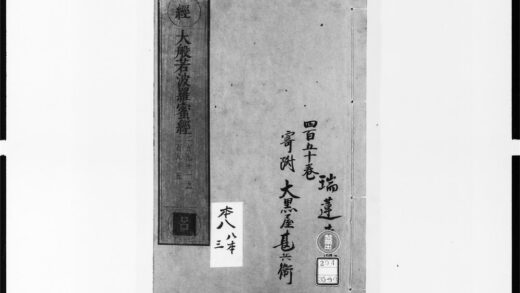 經
大般若波羅蜜經
呂
四百五十卷
瑞蓮
寄附
大黒屋甚兵衛
本八
八本
三